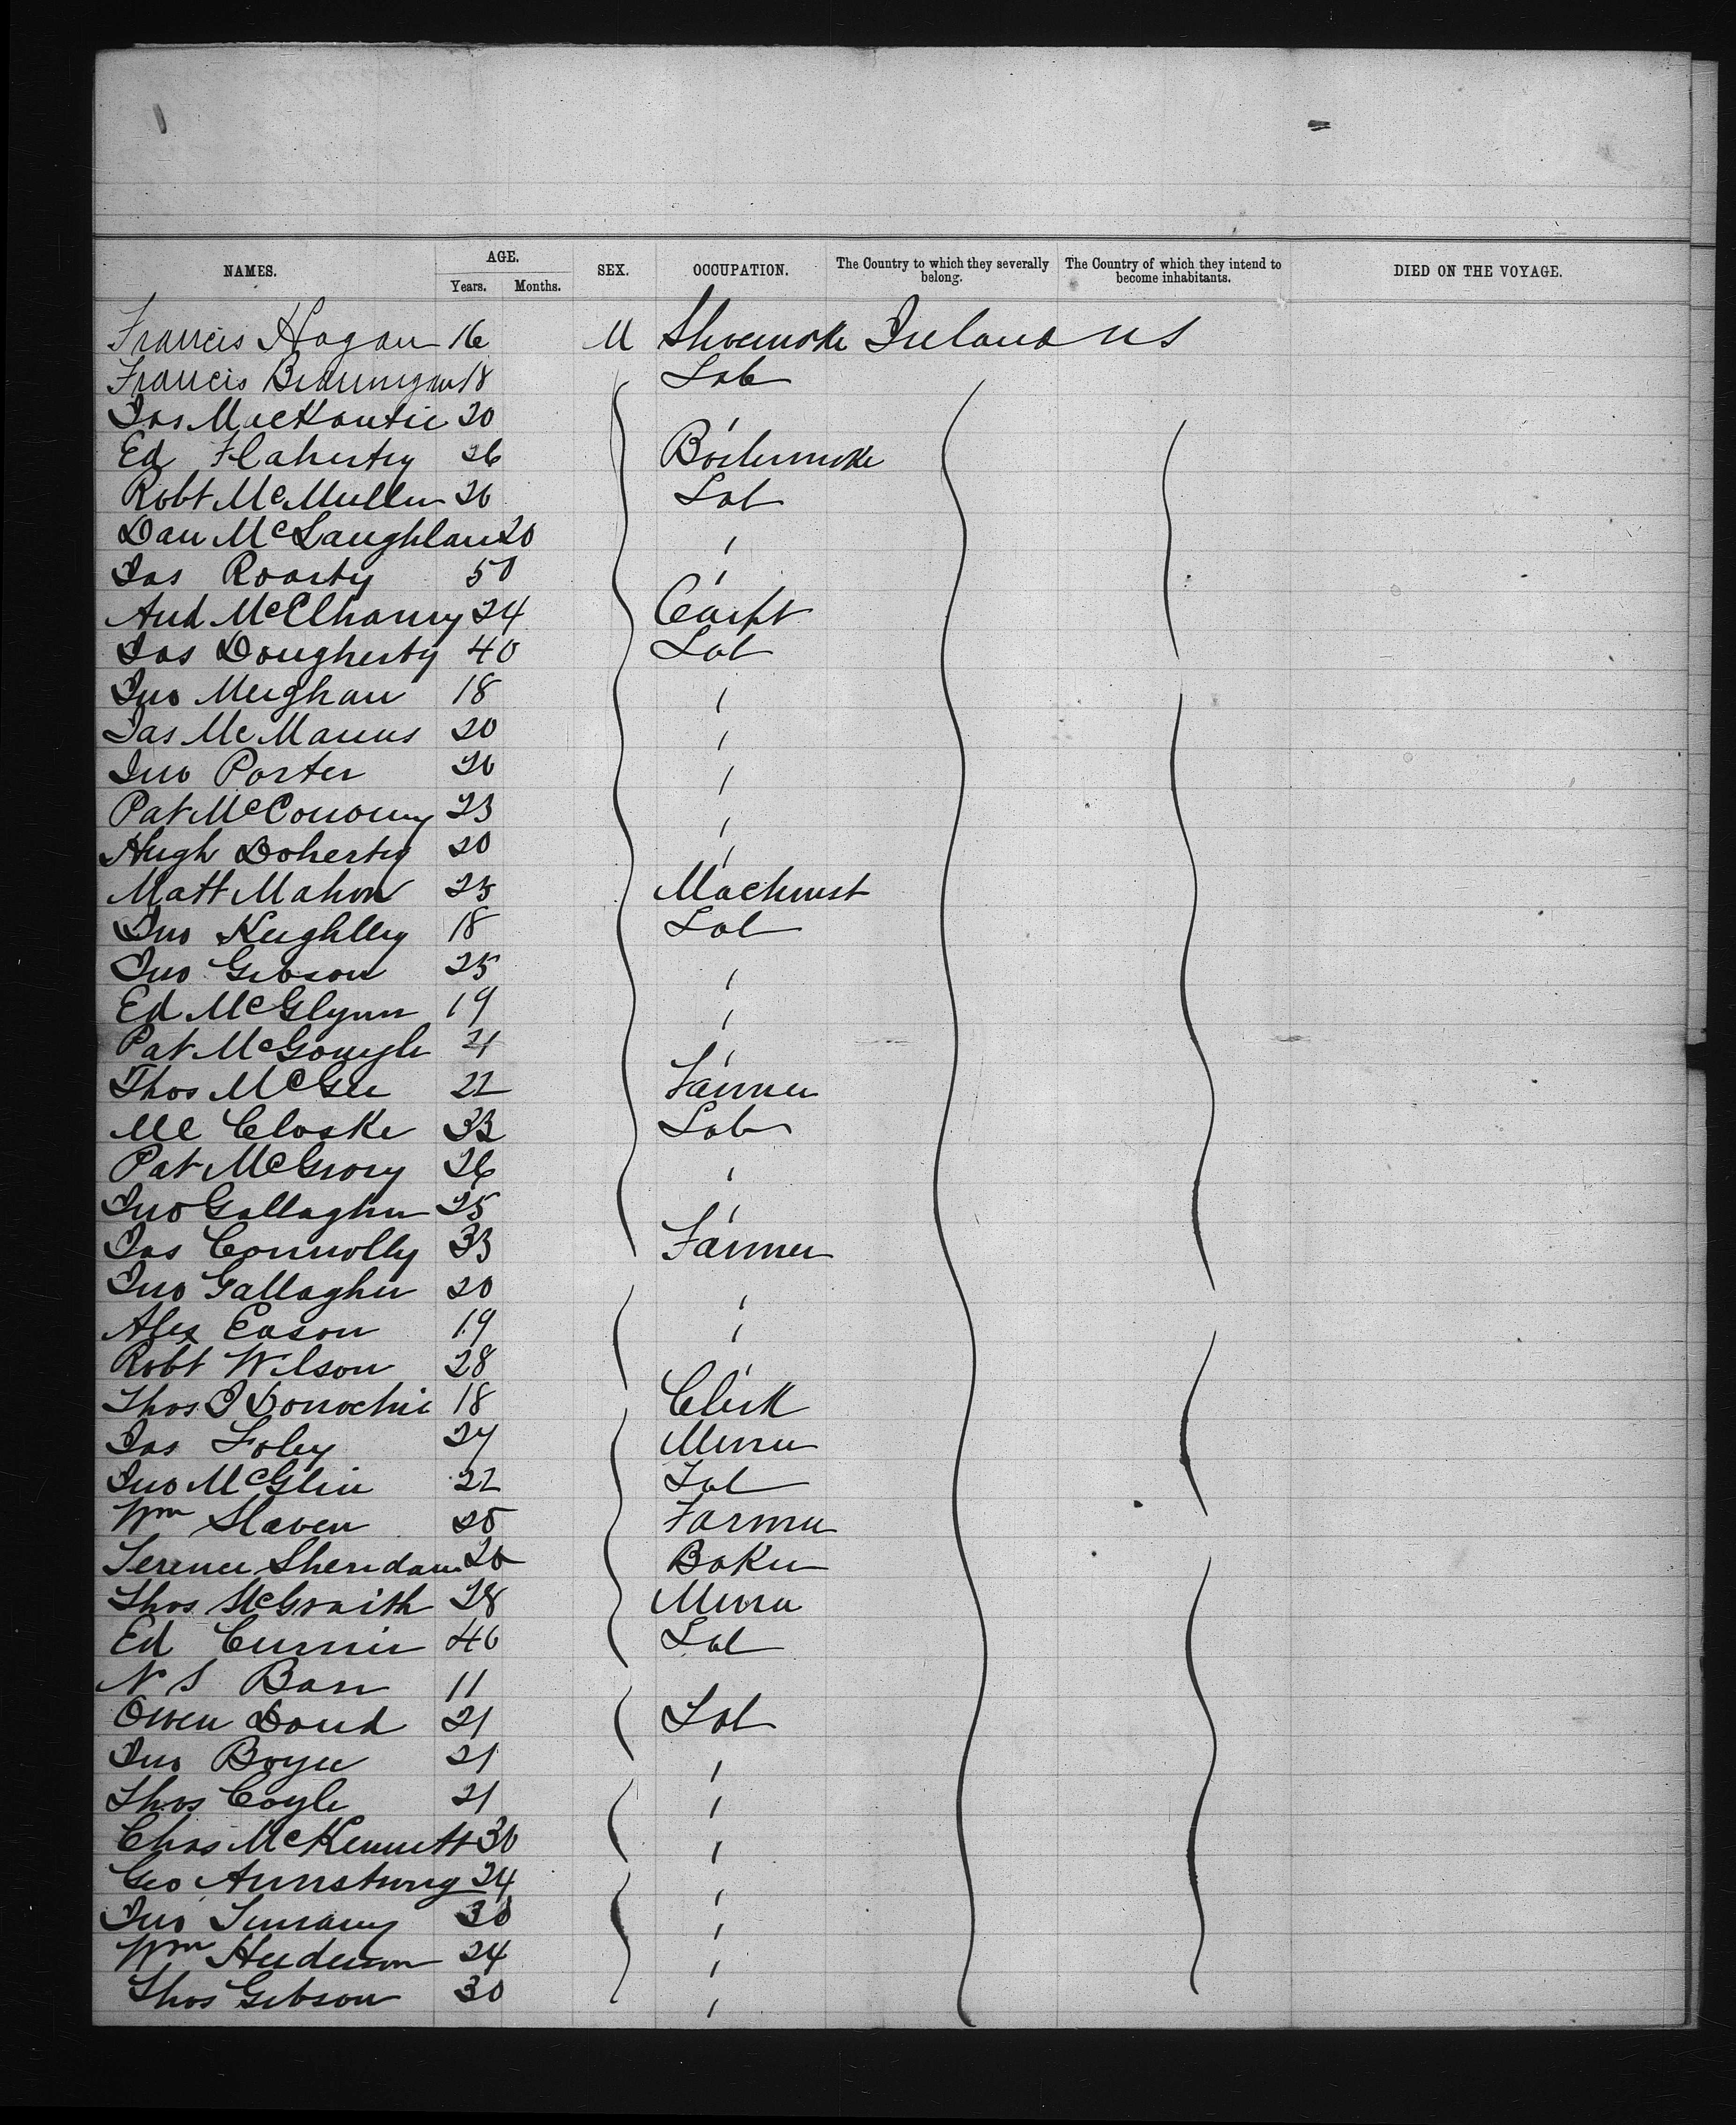 NAMES. AGE. SEX. OCCUPATION. The Country to which they severally belong. The Country of which they intend to become inhabitants. DIED ON THE VOYAGE.
Years. Months.
Francis Hogan 16 M Shoemake Ireland US
Francis 18 Lab
Jas 20 '
Ed Flaherty 26 Boilermake
Robt McMullen 20 Lab
Dan McLaughlan 20 '
Jas Roarty 50 '
And McElhanny 24 Carpt
Jas Dougherty 40 Lab
Jno Meighan 18 '
Jas McManus 20 '
Jno Porter 20 '
Pat McConomy 23 '
Hugh Doherty 20 '
Matt Mahon 25 Machinist
Jno Keighlley 18 Lab
Jno Gibson 25 '
Ed McGlynn 19 '
Pat McGonigle 21 '
Thos McGee 22 Farmer
Mc Closke 33 Lab
Pat McGrory 26 '
Jno Gallagher 25 '
Jas Connolly 33 Farmer
Jno Gallagher 20 '
Alex Eason 19 '
Robt Wilson 28 '
Thos J Donochie 18 Clerk
Jas Foley 27 Miner
Jno McGlin 22 Lab
Wm Slaven 25 Farmer
Terence Sheridan 20 Baker
Thos McGraith 28 Miner
Ed Currie 40 Lab
N S Barr 11
Owen Doud 21 Lab
Jno Boyce 21 '
Thos Coyle 21 '
Chas McKennett 30 '
Geo Armstrong 24 '
Jno 30 '
Wm Henderson 24 '
Thos Gibson 30 '